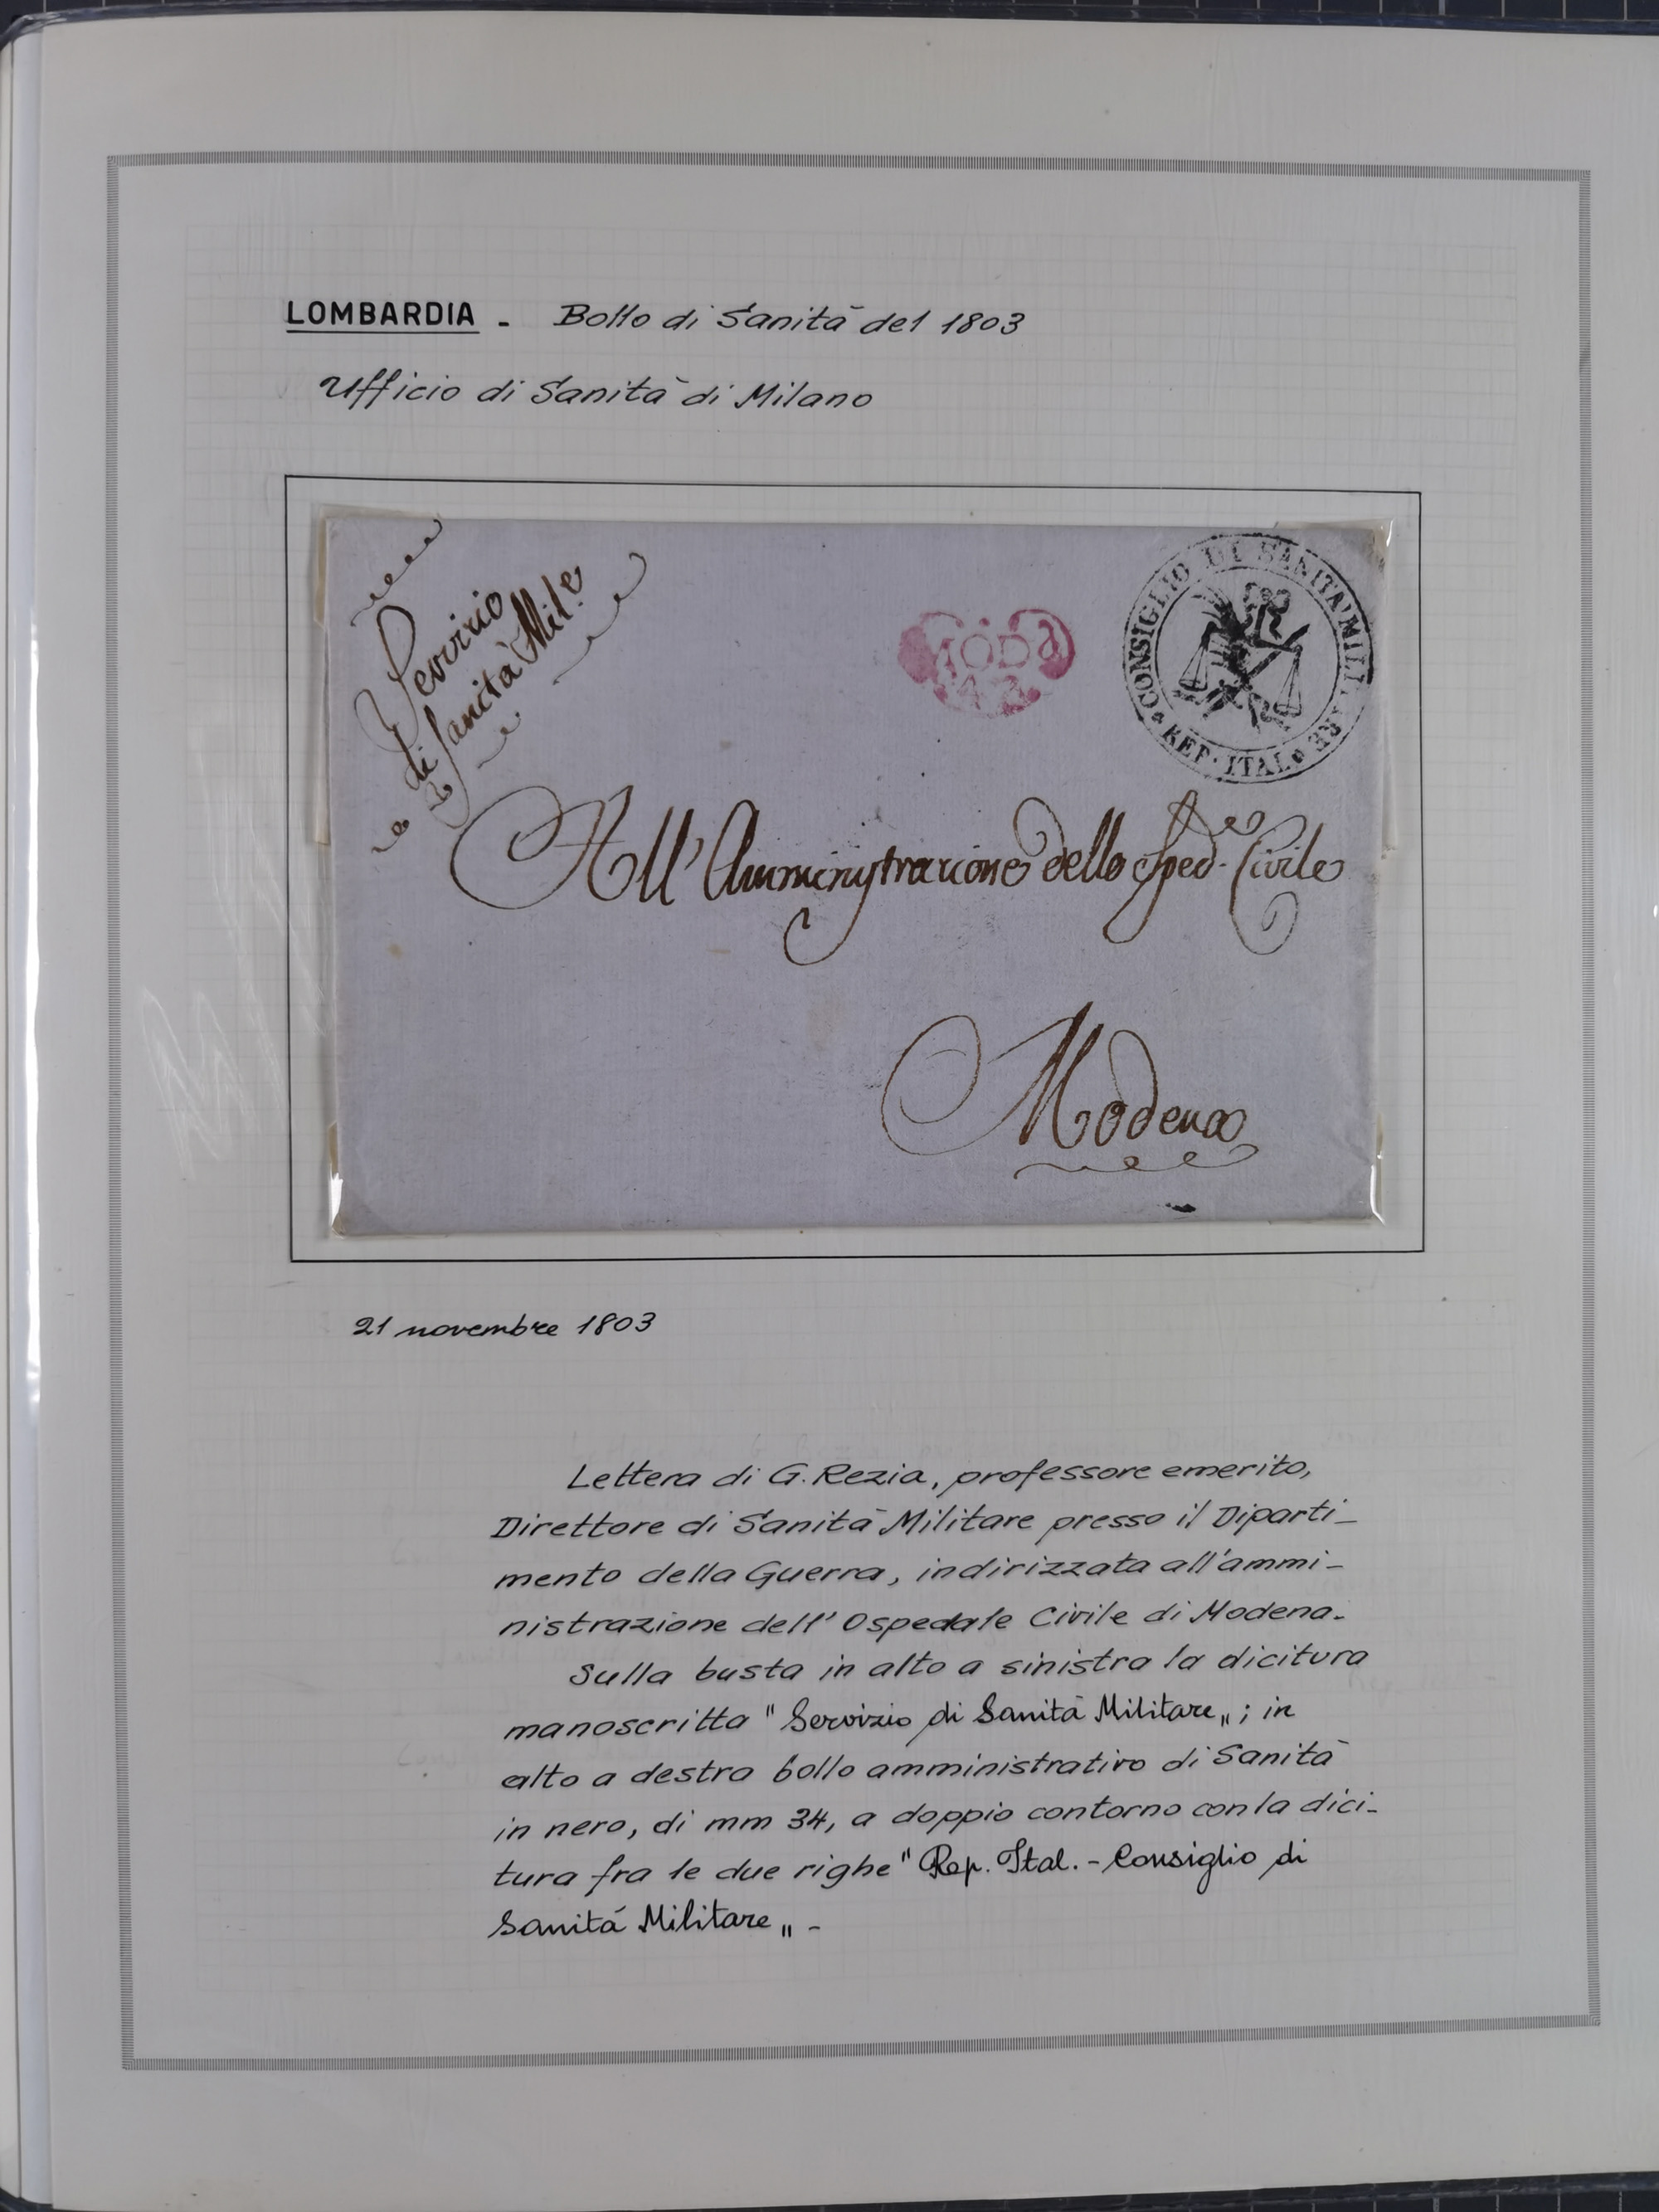 LOMBARDIA - Bollo di Sanità del 1803
Ufficio di Sanità di Milano
Servizio
di Sanità Mil.e
CONSIGLIO DI SANITA MILIT.RE
REP. ITAL.
All'Amministrazione dello Sped. Civile
Modena
21 novembre 1803
Lettera di G. Rezia, professore emerito,
Direttore di Sanità Militare presso il Diparti-
mento della Guerra, indirizzata all'ammi-
nistrazione dell'Ospedale Civile di Modena.
Sulla busta in alto a sinistra la dicitura
manoscritta "Servizio di Sanità Militare„; in
alto a destra bollo amministrativo di Sanità
in nero, di mm 34, a doppio contorno con la dici-
tura fra le due righe "Rep. Ital. - Consiglio di
Sanità Militare„ -